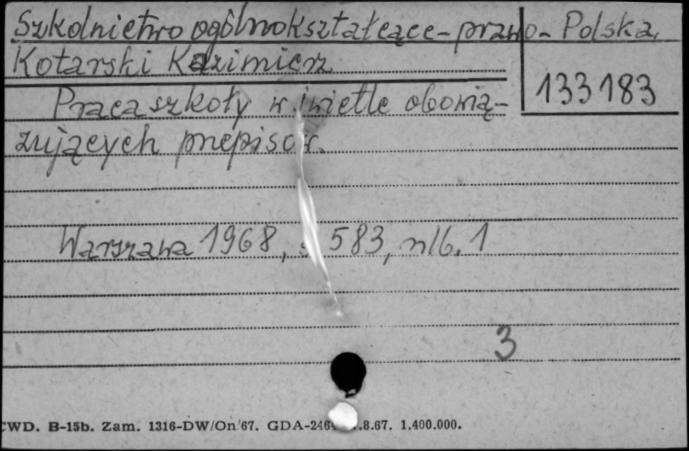 Szkolnictwo ogólnokształcące - prawo - Polska,
Kotarski Kazimierz
133183
Praca szkoły w świetle obowią-
zujących przepisów.
Warszawa 1968, s 583, nlb. 1
3
CWD. B-15b. Zam. 1316-DW/On/67. GDA-246 .8.67. 1.400.000.